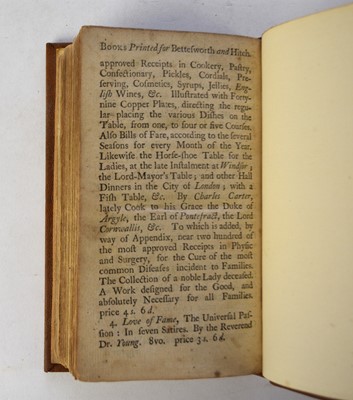 Books Printed for Bettesworth and Hitch.
approved Receipts in Cookery, Pastry,
Confectionary, Pickles, Cordials, Pre-
serving, Cosmetics, Syrups, Jellies, Eng-
lish Wines, &c. Illustrated with Forty-
nine Copper Plates, directing the regu-
lar placing the various Dishes on the
Table, from one, to four or five Courses.
Also Bills of Fare, according to the several
Seasons for every Month of the Year.
Likewise the Horse-shoe Table for the
Ladies, at the late Instalment at Windsor;
the Lord-Mayor's Table; and other Hall
Dinners in the City of London; with a
Fifth Table, &c. By Charles Carter,
lately Cook to his Grace the Duke of
Argyle, the Earl of Pontefract, the Lord
Cornwallis, &c. To which is added, by
way of Appendix, near two hundred of
the most approved Receipts in Physic
and Surgery, for the Cure of the most
common Diseases incident to Families.
The Collection of a noble Lady deceased.
A Work designed for the Good, and
absolutely Necessary for all Families.
price 4 s. 6 d.
4. Love of Fame, The Universal Pas-
sion: In seven Satires. By the Reverend
Dr. Young. 8vo. price 3 s. 6 d.